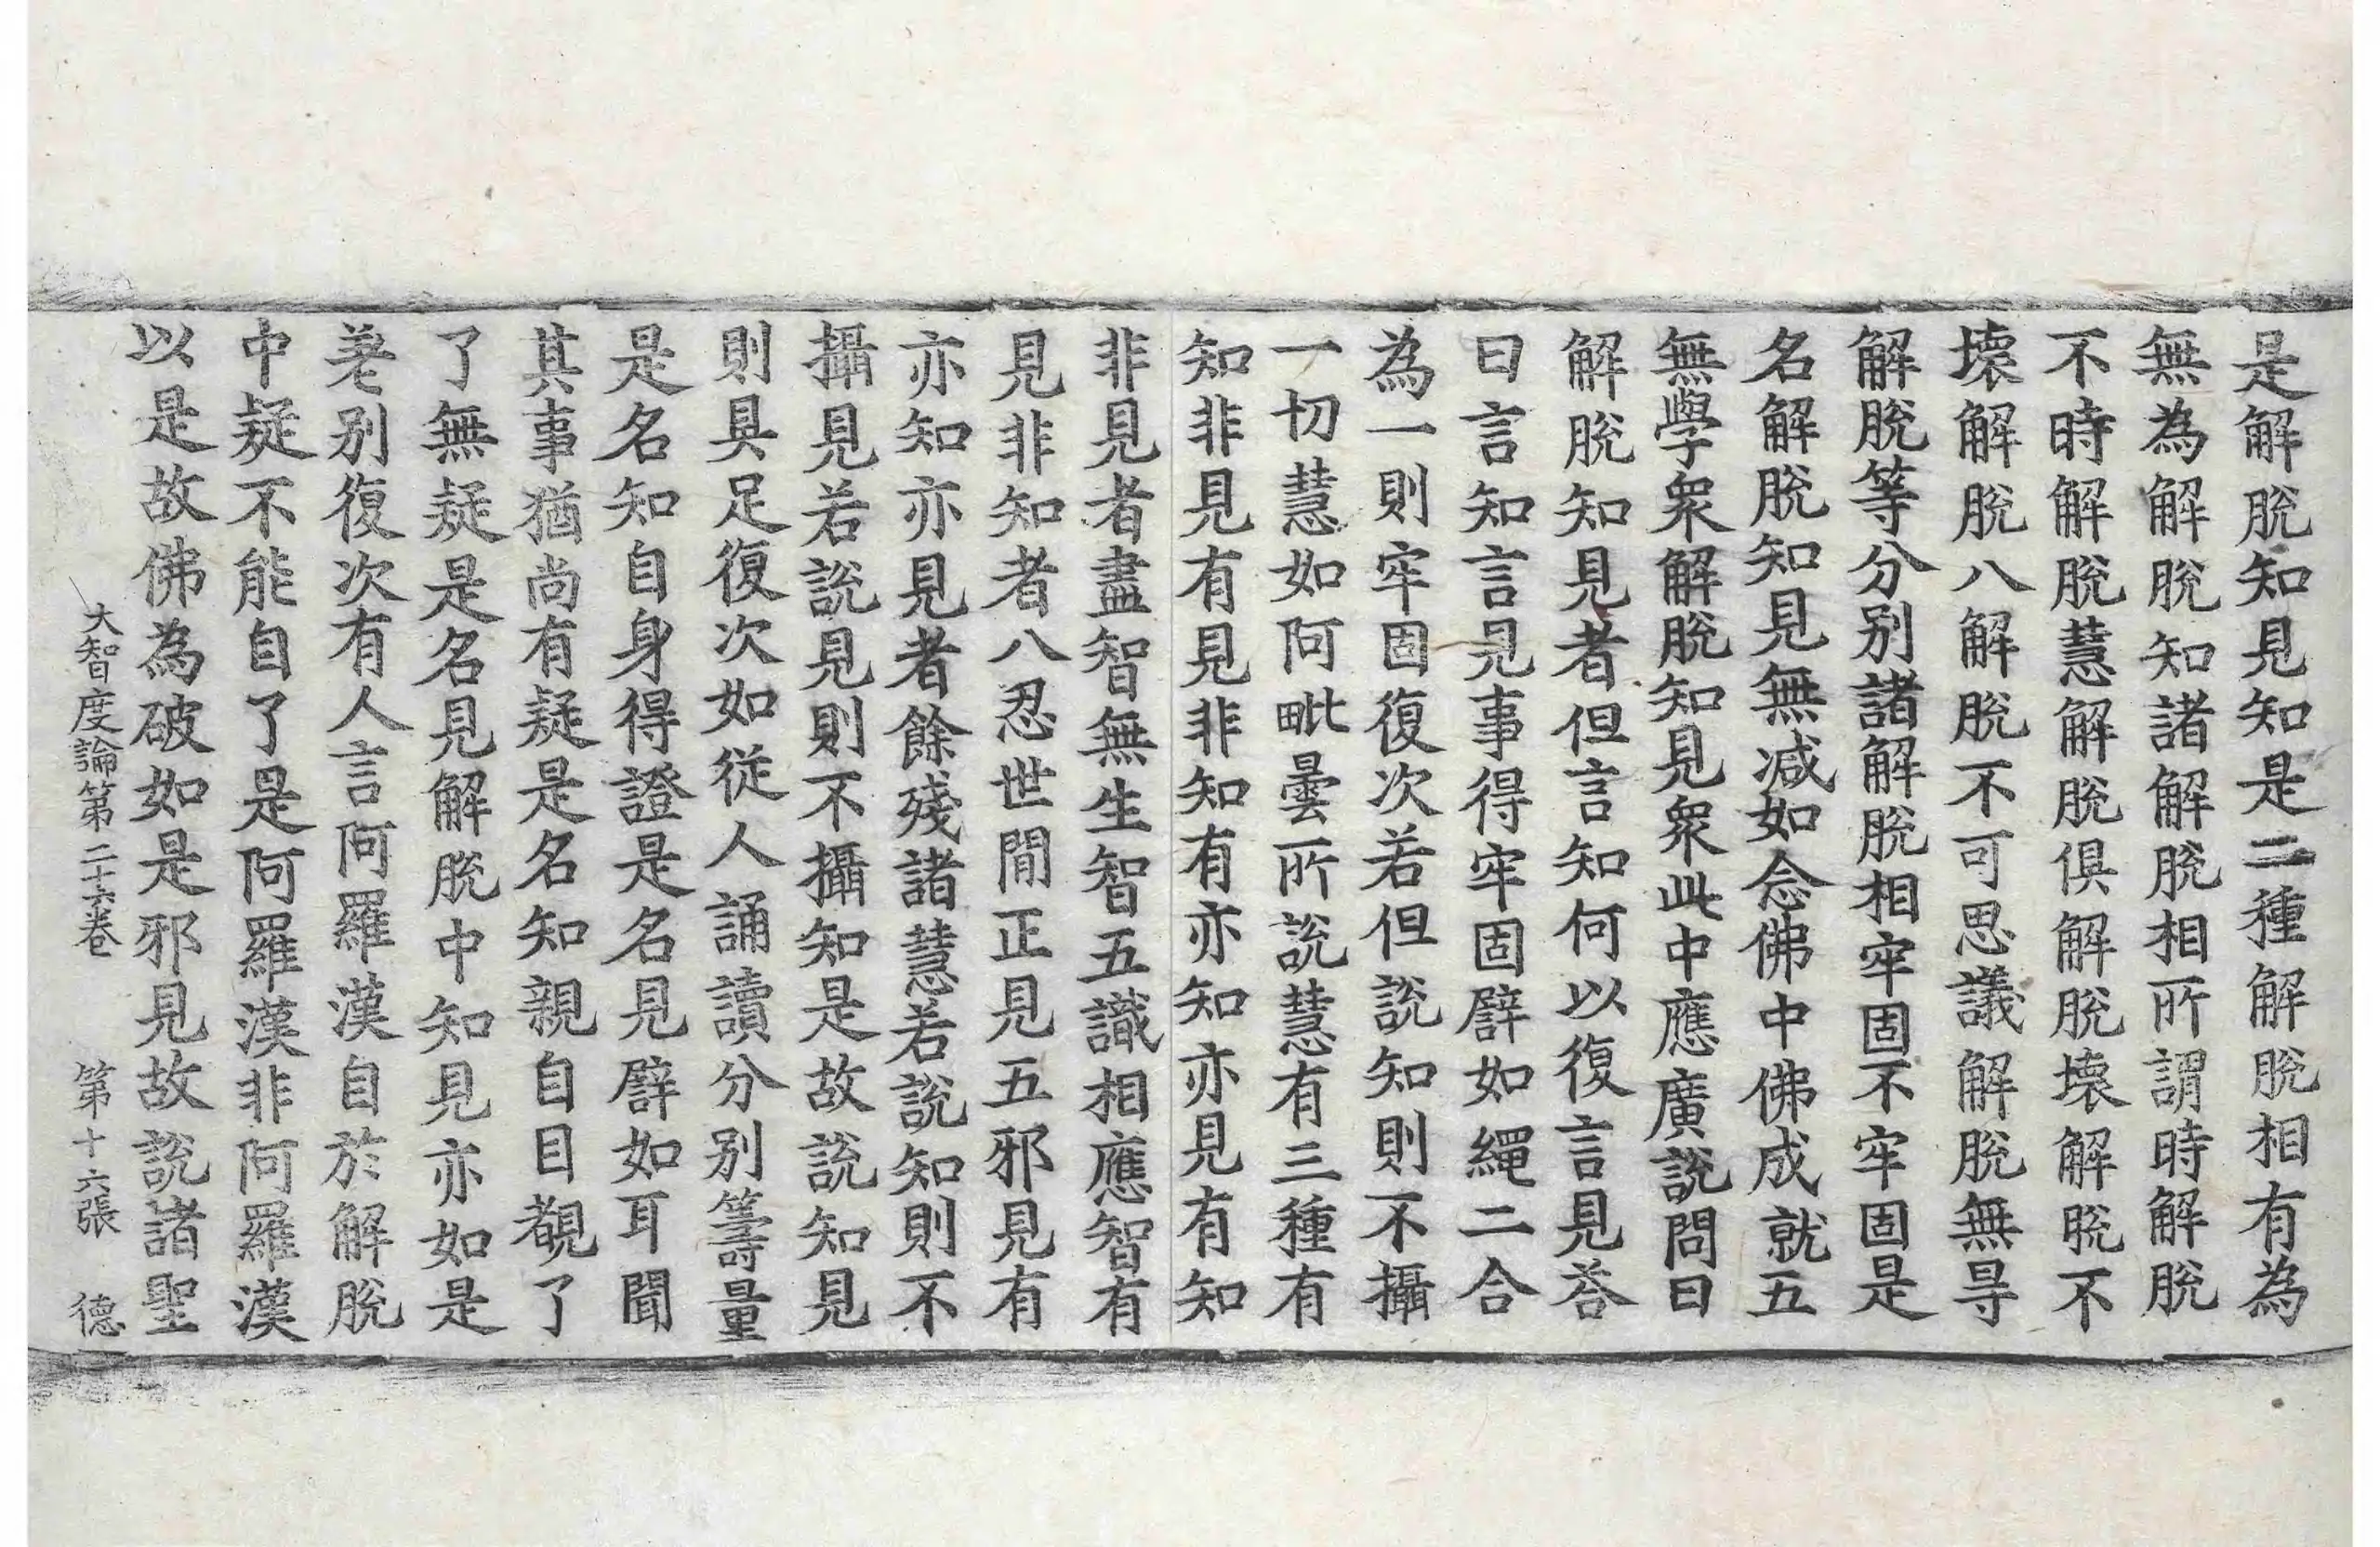 是解脫知見知是二種解脫相有為
無為解脫知諸解脫相所謂時解脫
不時解脫慧解脫俱解脫壞解脫不
壞解脫八解脫不可思議解脫無㝵
解脫等分別諸解脫相牢固不牢固是
名解脫知見無減如念佛中佛成就五
無學衆解脫知見衆此中應廣說問曰
解脫知見者但言知何以復言見荅
曰言知言見事得牢固譬如繩二合
為一則牢固復次若但說知則不攝
一切慧如阿毗曇所說慧有三種有
知非見有見非知有亦知亦見有知
非見者盡智無生智五識相應智有
見非知者八忍世閒正見五邪見有
亦知亦見者餘殘諸慧若說知則不
攝見若說見則不攝知是故說知見
則具足復次如從人誦讀分別籌量
是名知自身得證是名見譬如耳聞
其事猶尚有疑是名知親自目覩了
了無疑是名見解脫中知見亦如是
差別復次有人言阿羅漢自於解脫
中疑不能自了是阿羅漢非阿羅漢
以是故佛為破如是邪見故說諸聖
大智度論第二十六卷 第十六張 德